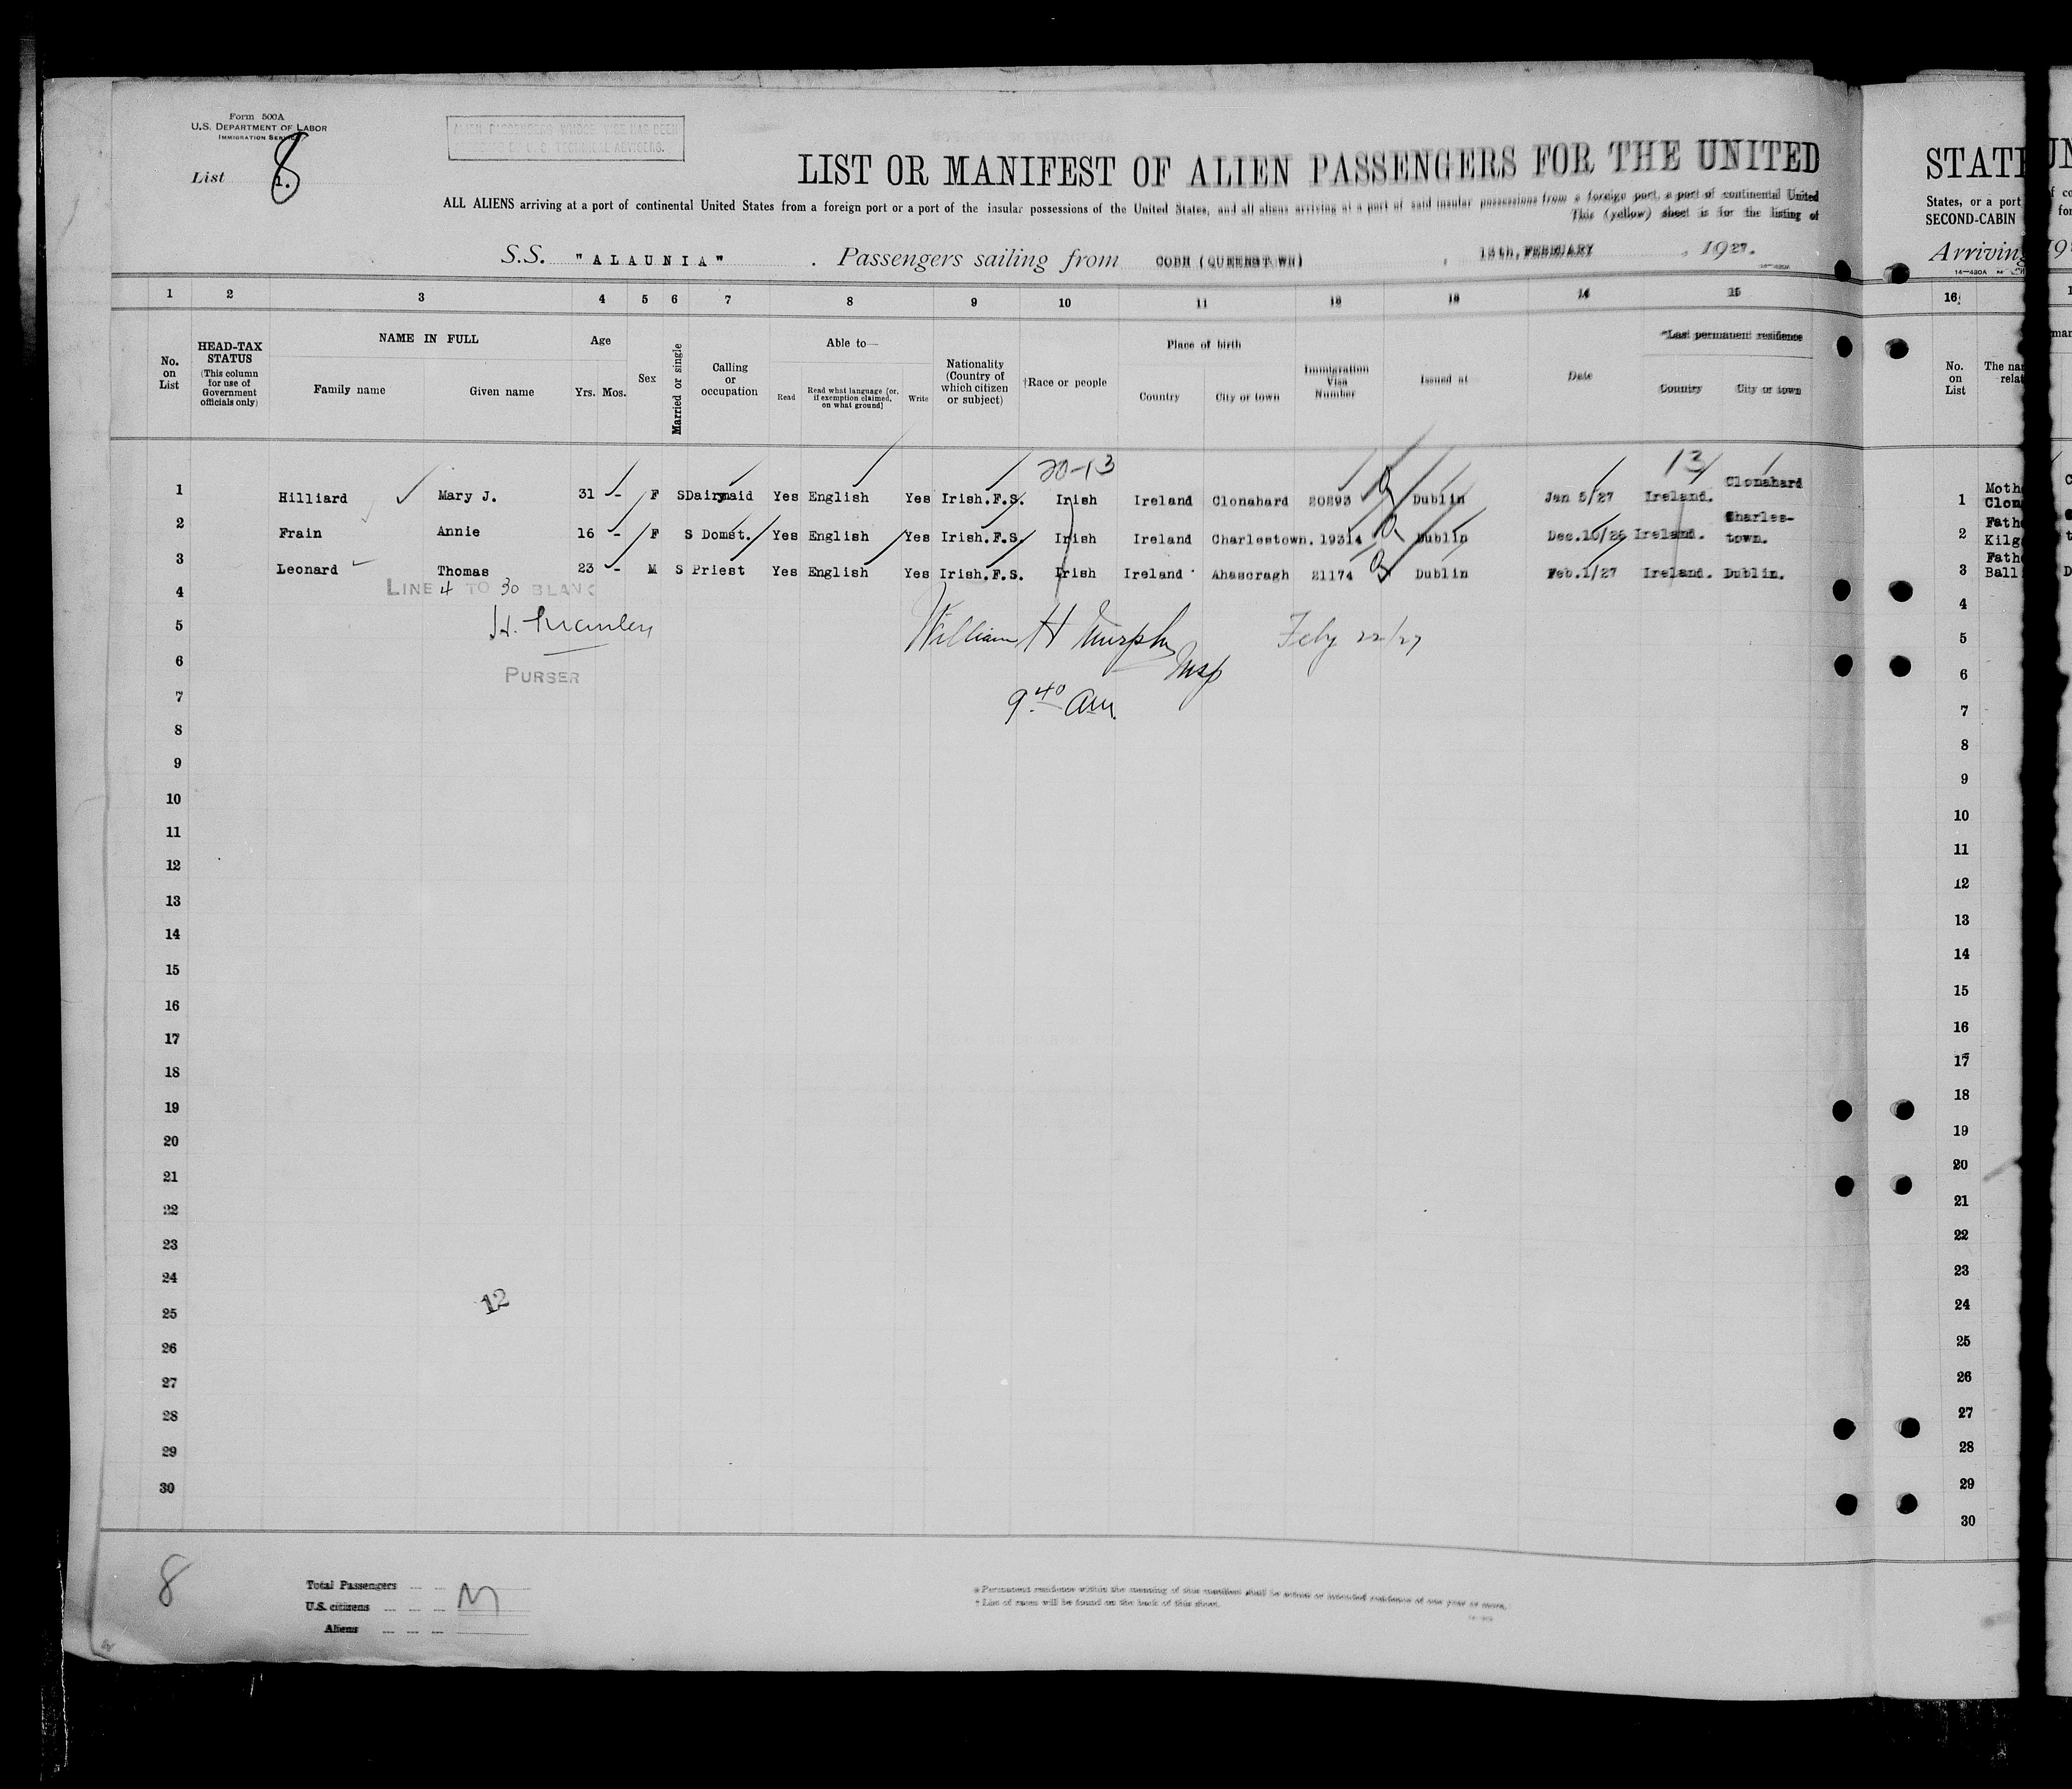 Form 500A
U.S. DEPARTMENT OF LABOR
IMMIGRATION SERVICE
ALIEN PASSENGERS WHOSE VISE HAS BEEN
BY U. S. TECHNICAL ADVISERS.
List 1. 8
LIST OR MANIFEST OF ALIEN PASSENGERS FOR THE UNITED
ALL ALIENS arriving at a port of continental United States from a foreign port or a port of the insular possessions of the United States, and all aliens arriving at a port of said insular possessions from a foreign port, a port of continental United
This (yellow) sheet is for the listing of
S.S. "ALAUNIA". Passengers sailing from COBH (QUEENSTOWN), 13th, FEBRUARY, 1927.
1 2 3 4 5 6 7 8 9 10 11 12 13 14 15
No. on List
HEAD-TAX STATUS (This column for use of Government officials only)
NAME IN FULL
Family name Given name
Age
Yrs. Mos.
Sex
Married or single
Calling or occupation
Able to—
Read Read what language [or, if exemption claimed, on what ground] Write
Nationality (Country of which citizen or subject)
†Race or people
Place of birth
Country City or town
Immigration Visa Number
Issued at
Date
*Last permanent residence
Country City or town
20-13 13
1 Hilliard Mary J. 31 - F S Dairymaid Yes English Yes Irish.F.S. Irish Ireland Clonahard 20293 Dublin Jan 5/27 Ireland. Clonahard
2 Frain Annie 16 - F S Domst. Yes English Yes Irish.F.S. Irish Ireland Charlestown. 19314 Dublin Dec.10/26 Ireland. Charles-
town.
3 Leonard Thomas 23 - M S Priest Yes English Yes Irish.F.S. Irish Ireland Ahascragh 21174 Dublin Feb.1/27 Ireland. Dublin.
4 LINE 4 TO 30 BLANK
5 William H Murphy Feby 22/27
6 PURSER Insp
7 9 40 am.
8
9
10
11
12
13
14
15
16
17
18
19
20
21
22
23
24
12
25
26
27
28
29
30
8
Total Passengers
U.S. citizens
Aliens
* Permanent residence within the meaning of this manifest shall be actual or intended residence of one year or more.
† List of races will be found on the back of this sheet.
STATE
States, or a port
SECOND-CABIN
Arriving
16
No. on List
The na
relat
1 Moth
Clon
2 Fath
Kilg
3 Fath
Ball
4
5
6
7
8
9
10
11
12
13
14
15
16
17
18
19
20
21
22
23
24
25
26
27
28
29
30